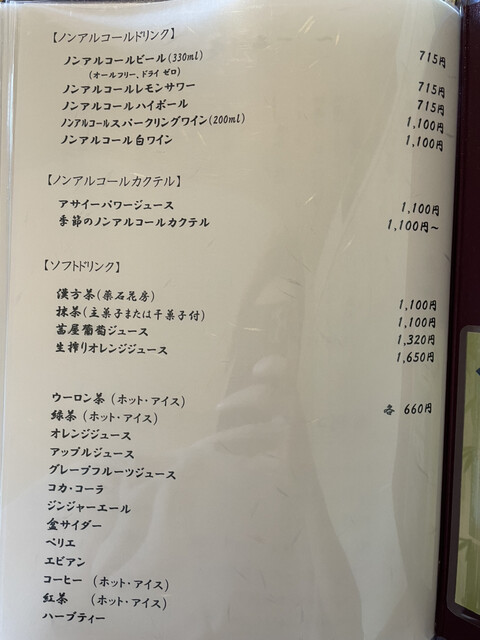 【ノンアルコールドリンク】
ノンアルコールビール(330ml) 715円
(オールフリー、ドライゼロ)
ノンアルコールレモンサワー 715円
ノンアルコールハイボール 715円
ノンアルコールスパークリングワイン(200ml) 1,100円
ノンアルコール白ワイン 1,100円
【ノンアルコールカクテル】
アサイーパワージュース 1,100円
季節のノンアルコールカクテル 1,100円～
【ソフトドリンク】
漢方茶(薬石花房) 1,100円
抹茶(主菓子または干菓子付) 1,100円
葡萄ジュース 1,320円
生搾りオレンジジュース 1,650円
ウーロン茶(ホット・アイス) 各 660円
緑茶(ホット・アイス)
オレンジジュース
アップルジュース
グレープフルーツジュース
コカ・コーラ
ジンジャーエール
サイダー
ペリエ
エビアン
コーヒー(ホット・アイス)
紅茶 (ホット・アイス)
ハーブティー